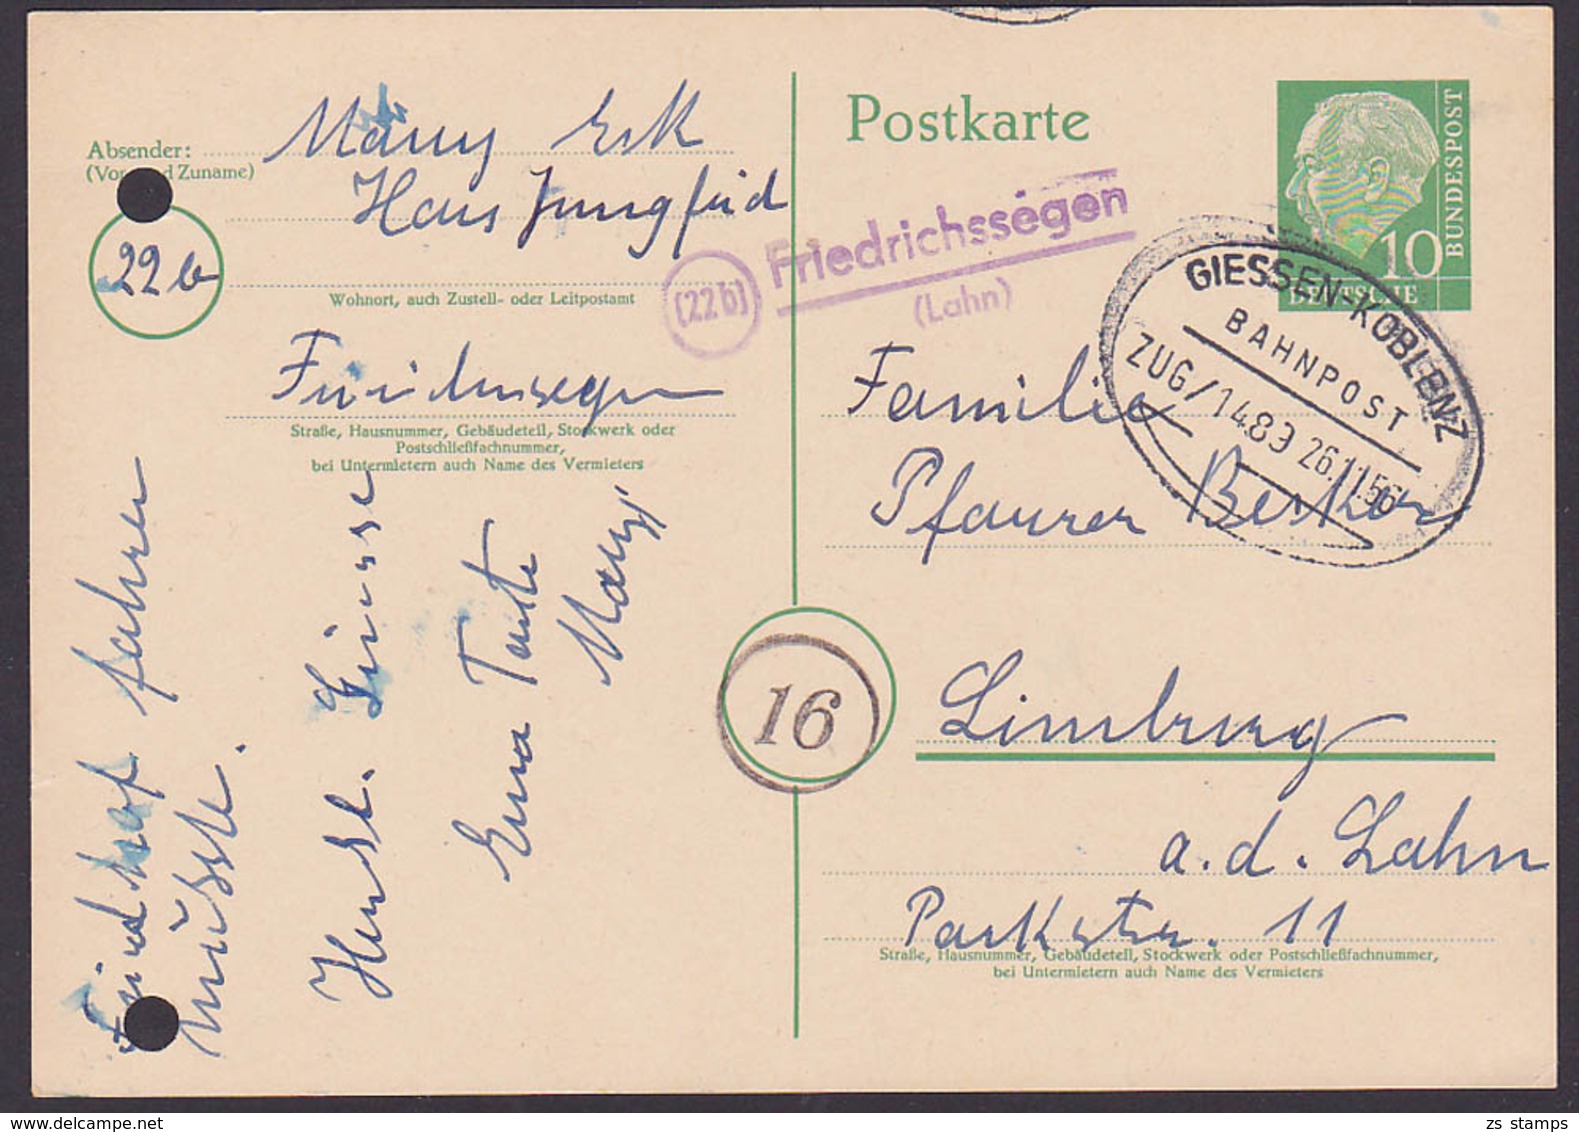 Absender:
(Vor d Zuname)
Hans
22b
Wohnort, auch Zustell- oder Leitpostamt
Straße, Hausnummer, Gebäudeteil, Stockwerk oder
Postschließfachnummer,
bei Untermietern auch Name des Vermieters
fahren
müsste.
Herzl. Grüsse
Tante
Postkarte
10
DEUTSCHE
BUNDESPOST
(22b) Friedrichssegen
(Lahn)
GIESSEN-KOBLENZ
BAHNPOST
ZUG/1483 26.11.56
Familie
Pfarrer
16
Limburg
a. d. Lahn
Parkstr. 11
Straße, Hausnummer, Gebäudeteil, Stockwerk oder Postschließfachnummer,
bei Untermietern auch Name des Vermieters
zs stamps